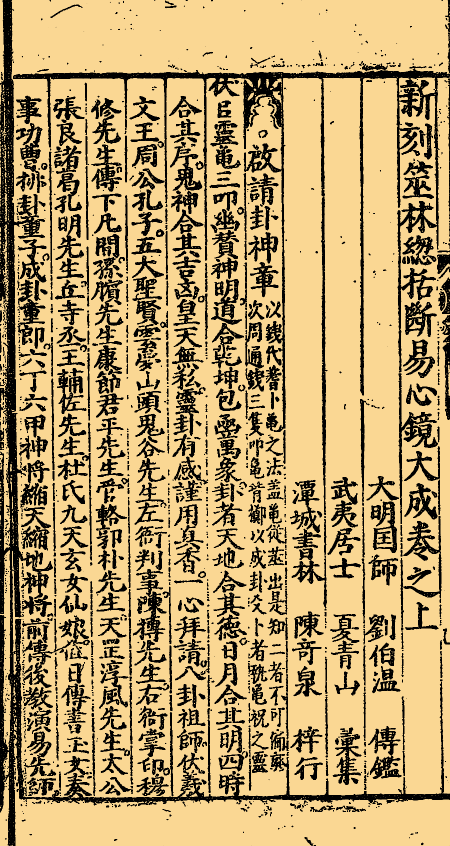 新刻筮林總括斷易心鏡大成卷之上
大明国師 劉伯温 傳鑑
武夷居士 夏青山 彙集
潭城書林 陳奇泉 梓行
啟請卦神章
以錢代蓍卜龜之法蓋龜從筮出是知二者不可偏廢
次周通錢三隻叩龜首擲以成卦爻卜者執龜祝之靈
伏㠯靈龜三叩幽賛神明道合乾坤包羅萬象卦者天地合其德日月合其明四時
合其序鬼神合其吉凶皇天無私靈卦有感謹用真香一心拜請八卦祖師伏羲
文王周公孔子五大聖賢雲夢山頭鬼谷先生左衙判事陳摶先生右衙掌印楊
修先生傳下凡間孫臏先生康節君平先生管輅郭朴先生天罡淳風先生太公
張良諸葛孔明先生丘寺丞王輔佐先生杜氏九天玄女仙娘值日傳善玉女奏
事功曹排卦童子成卦童郎六丁六甲神将縮天縮地神將前傳後教演易先師